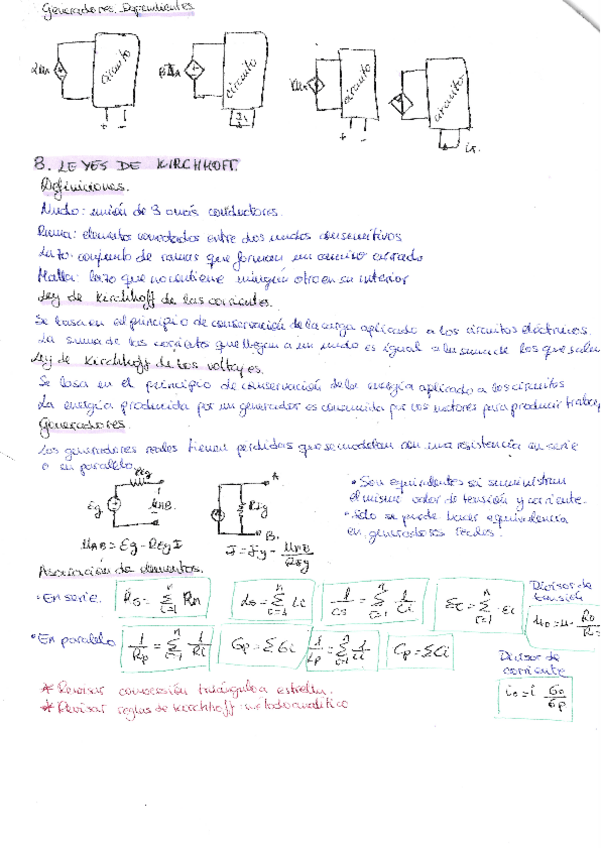 Generadores Dependientes
circuito circuito circuito circuito
+ - + -
8. LEYES DE KIRCHHOFF.
Definiciones.
Nudo: unión de 3 o más conductores.
Rama: elementos conectados entre dos nudos consecutivos
Lazo: conjunto de ramas que forman un camino cerrado
Malla: lazo que no contiene ningún otro en su interior
Ley de Kirchhoff de las corrientes.
Se basa en el principio de conservación de la carga aplicado a los circuitos eléctricos.
La suma de las corrientes que llegan a un nudo es igual a la suma de las que salen
Ley de Kirchhoff de los voltajes.
Se basa en el principio de conservación de la energía aplicado a los circuitos
La energía producida por un generador es consumida por los motores para producir trabajo
Generadores
Los generadores reales tienen perdidas que se modelan con una resistencia en serie
o en paralelo.
REg A
Eg UAB. RIg
B.
• Son equivalentes si suministran
el mismo valor de tensión y corriente.
• Sólo se puede hacer equivalencia
en generadores reales.
UAB = Eg - REg I
I = Ig - UAB/RIg
Asociación de elementos.
• En serie.
Ls = Σ Li
1/Cs = Σ 1/Ci
Divisor de
tensión
• En paralelo
1/Rp = Σ 1/Ri
Gp = ΣGi
1/Lp = Σ 1/Li
Cp = ΣCi
Divisor de
corriente
io = i Go/Gp
* Revisar conversión triángulo a estrella.
* Revisar reglas de Kirchhoff método analítico